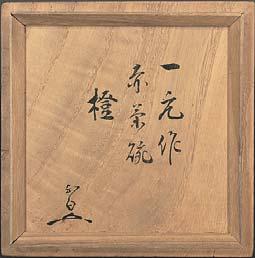 一元作
赤茶碗
橙